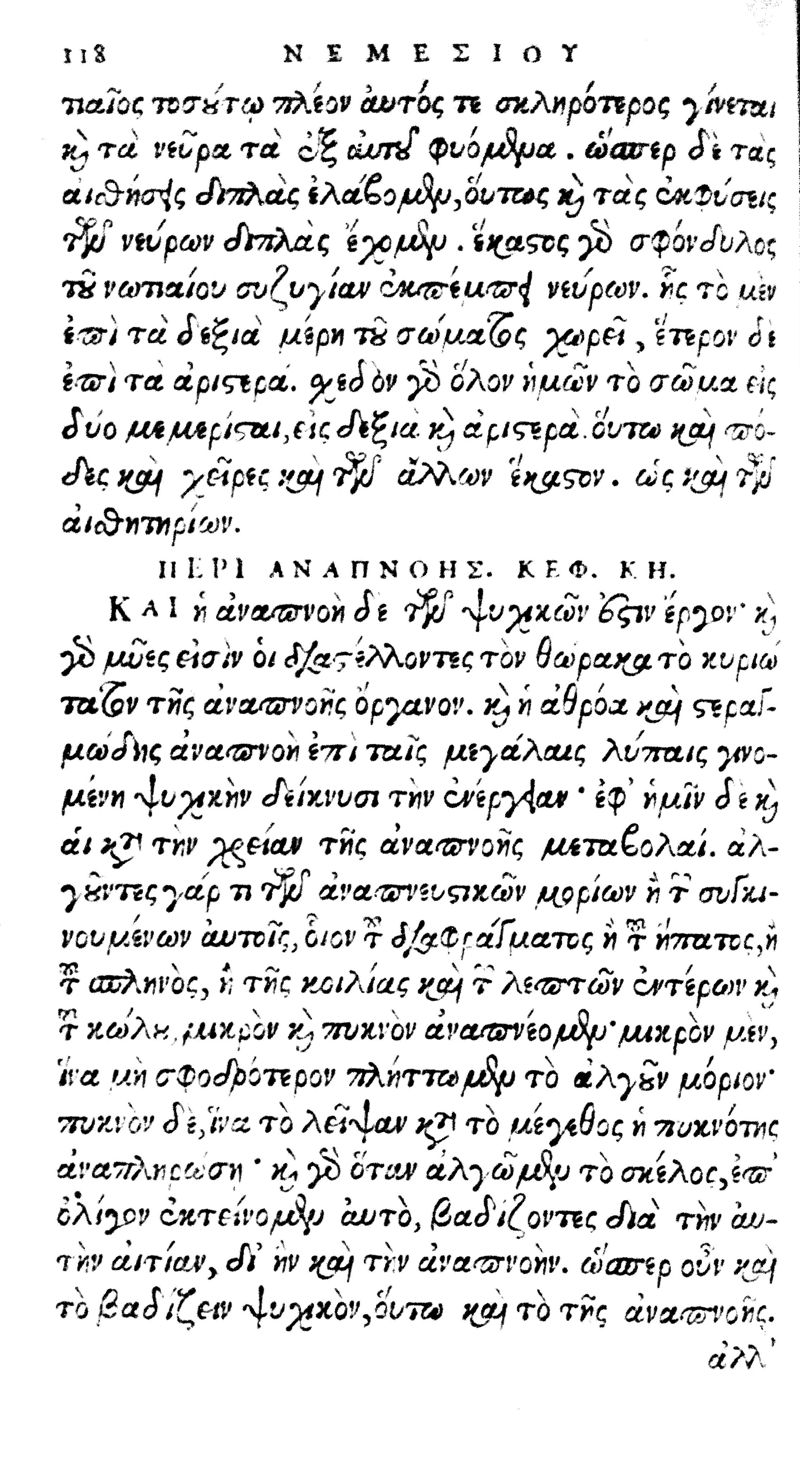 118 ΝΕΜΕΣΙΟΥ
τιαῖος τοσούτῳ πλέον ἀυτός τε σκληρότερος γίνεται
καὶ τὰ νεῦρα τὰ ἐξ αὐτοῦ φυόμενα. ὥσπερ δὲ τὰς
αἰσθήσεις διπλὰς ἐλάβομεν, ὅυτως καὶ τὰς ἐκφύσεις
τῶν νεύρων διπλὰς ἔχομεν. ἕκαστος γὰρ σφόνδυλος
τοῦ νωτιαίου συζυγίαν ἐκπέμπει νεύρων. ἧς τὸ μὲν
ἐπὶ τὰ δεξιὰ μέρη τοῦ σώματος χωρεῖ, ἕτερον δὲ
ἐπὶ τὰ ἀριστερά. σχεδὸν γὰρ ὅλον ἡμῶν τὸ σῶμα εἰς
δύο μεμερίσται, εἰς δεξιὰ καὶ ἀριστερὰ. ὅυτω καὶ πό-
δες καὶ χεῖρες καὶ τῶν ἄλλων ἕκαστον. ὡς καὶ τῶν
αἰσθητηρίων.
ΠΕΡΙ ΑΝΑΠΝΟΗΣ. ΚΕΦ. ΚΗ.
ΚΑΙ ἡ ἀναπνοὴ δὲ τῶν ψυχικῶν ἐστιν ἔργον· καὶ
γὰρ μῦες εἰσὶν ὁι διαστέλλοντες τὸν θώρακα τὸ κυριώ
τατον τῆς ἀναπνοῆς ὄργανον. καὶ ἡ ἀθρόα καὶ στεραγ-
μώδης ἀναπνοὴ ἐπὶ ταῖς μεγάλαις λύπαις γινο-
μένη ψυχικὴν δείκνυσι τὴν ἐνέργειαν· ἐφ' ἡμῖν δὲ καὶ
ἁι κατὰ τὴν χρείαν τῆς ἀναπνοῆς μεταβολαί. ἀλ-
γοῦντες γάρ τι τῶν ἀναπνευστικῶν μορίων ἢ τῶν συγκι-
νουμένων ἀυτοῖς, ὅιον τοῦ διαφράγματος ἢ τοῦ ἥπατος, ἢ
τοῦ σπληνὸς, ἢ τῆς κοιλίας καὶ τῶν λεπτῶν ἐντέρων καὶ
τοῦ κώλου, μικρὸν καὶ πυκνὸν ἀναπνέομεν· μικρὸν μὲν,
ἵνα μὴ σφοδρότερον πλήττωμεν τὸ ἀλγοῦν μόριον·
πυκνὸν δὲ, ἵνα τὸ λεῖψαν κατὰ τὸ μέγεθος ἡ πυκνότης
ἀναπληρώσῃ· καὶ γὰρ ὅταν ἀλγῶμεν τὸ σκέλος, ἐπ'
ὀλίγον ἐκτείνομεν ἀυτὸ, βαδίζοντες διὰ τὴν ἀυ-
τὴν αἰτίαν, δι' ἣν καὶ τὴν ἀναπνοὴν. ὥσπερ οὖν καὶ
τὸ βαδίζειν ψυχικὸν, ὅυτω καὶ τὸ τῆς ἀναπνοῆς.
ἀλλ'